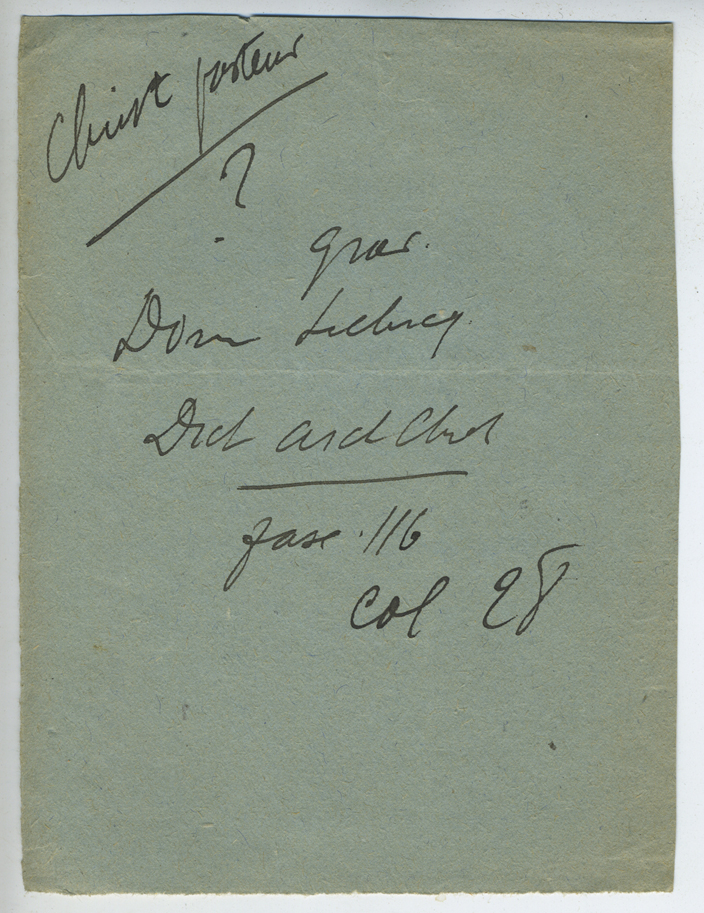 Christ pasteur
?
grav.
Dom Leclercq
Dict arch Chret
fasc. 116
col 28